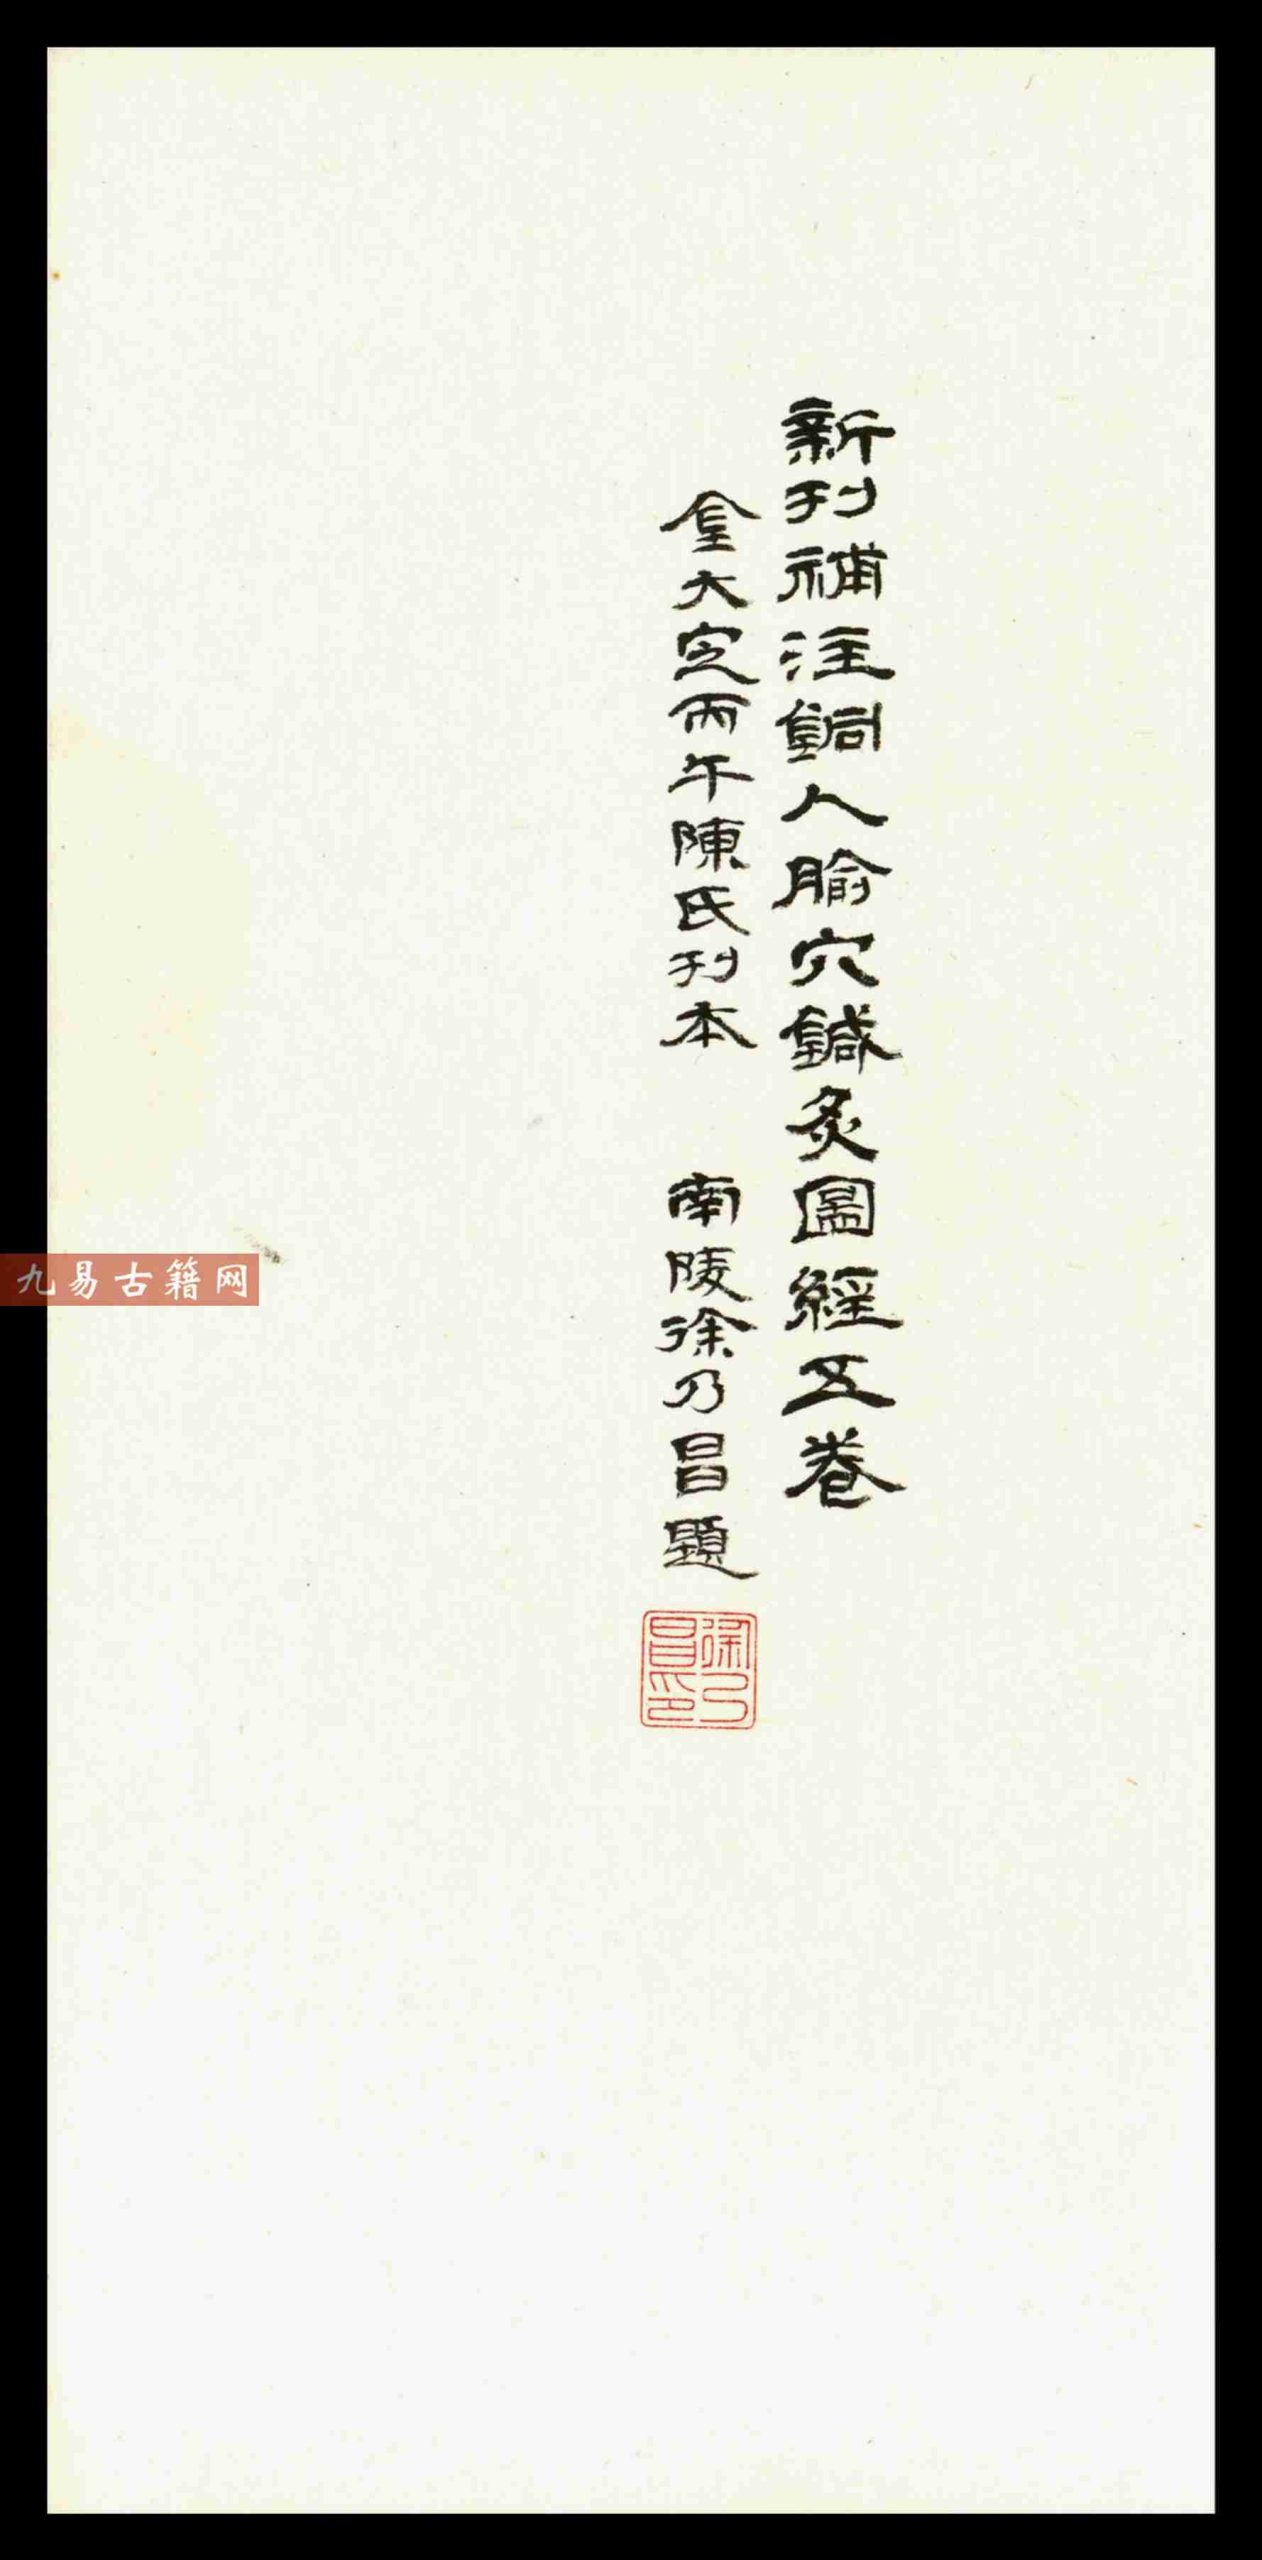 新刊補注銅人腧穴鍼灸圖經五卷
金大定丙午陳氏刊本 南陵徐乃昌題
徐乃昌印
九易古籍网